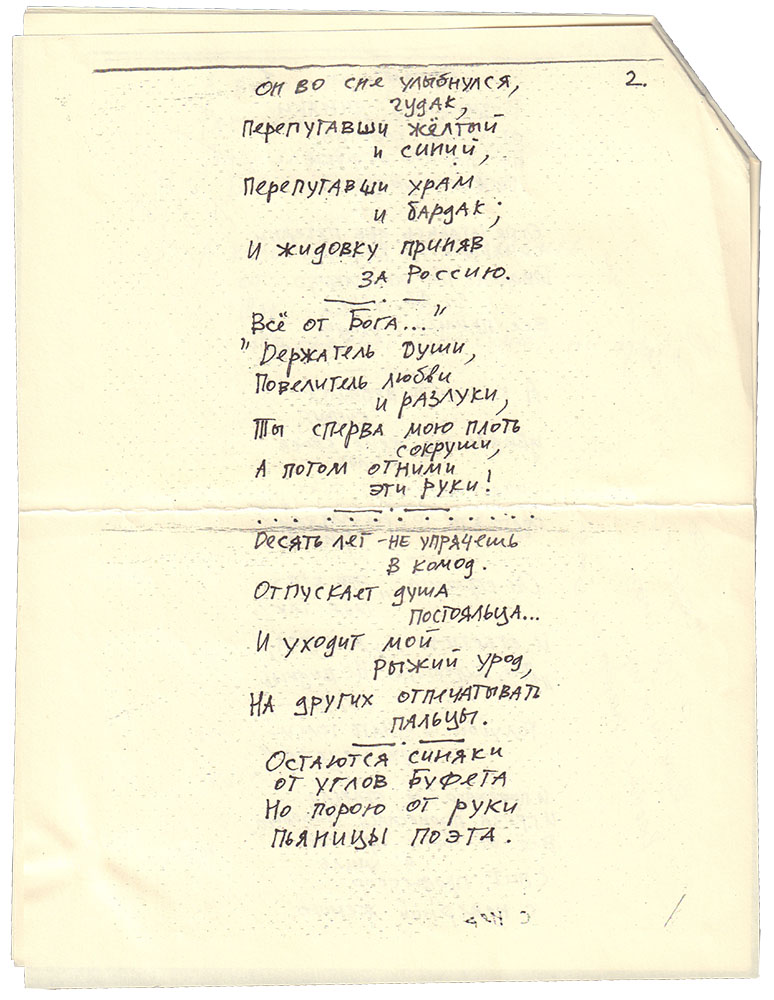 2.
Он во сне улыбнулся,
чудак,
Перепутавши жёлтый
и синий,
Перепутавши храм
и бардак;
И жидовку приняв
за Россию.
Всё от Бога..."
"Держатель души,
Повелитель любви
и разлуки,
Ты сперва мою плоть
сокруши,
А потом отними
эти руки!
Десять лет - не упрячешь
в комод.
Отпускает душа
постояльца...
И уходит мой
рыжий урод,
На других отпечатывать
пальцы.
Остаются синяки
от углов буфета
Но порою от руки
пьяницы поэта.